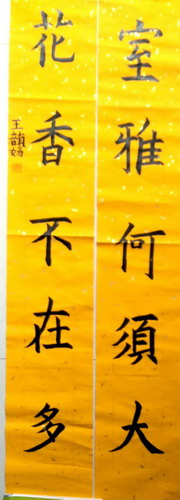 室雅何須大
花香不在多
王韻婷